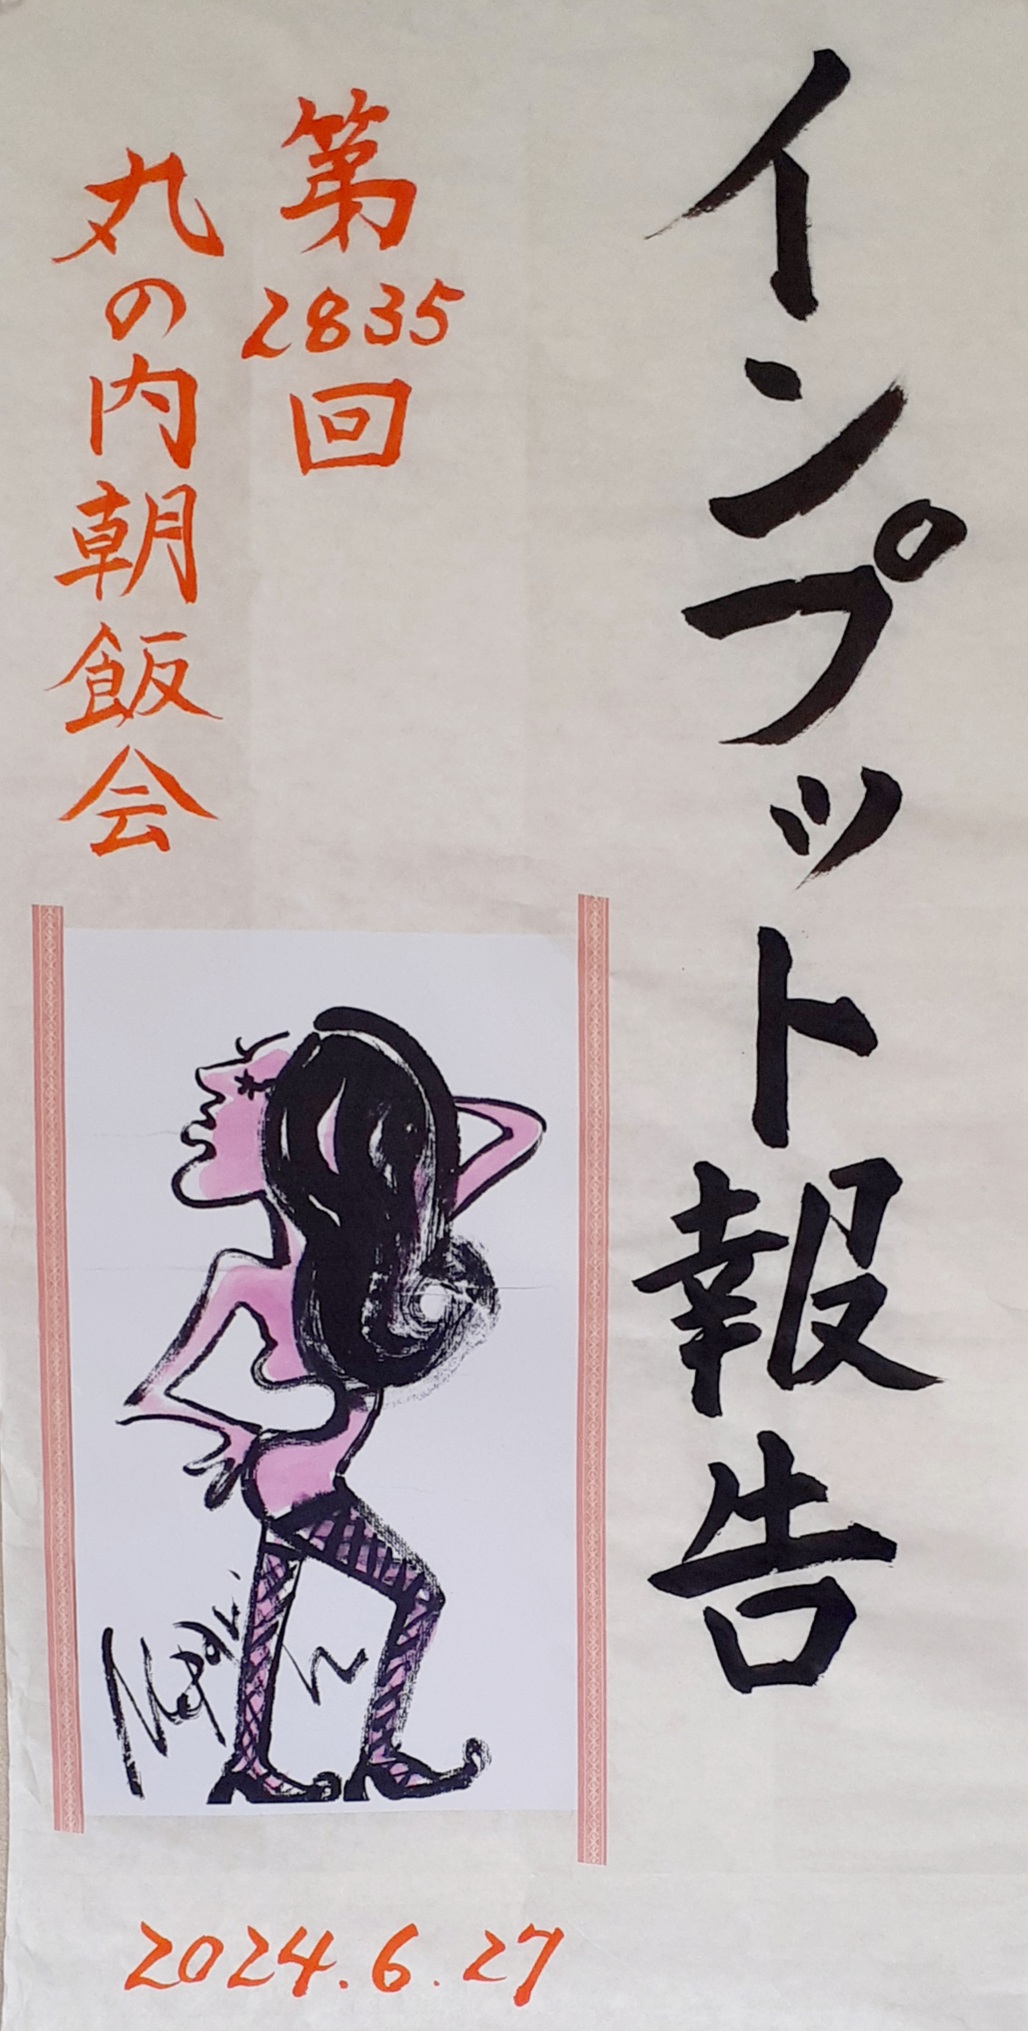 インプット報告
第2835回
丸の内朝飯会
2024.6.27